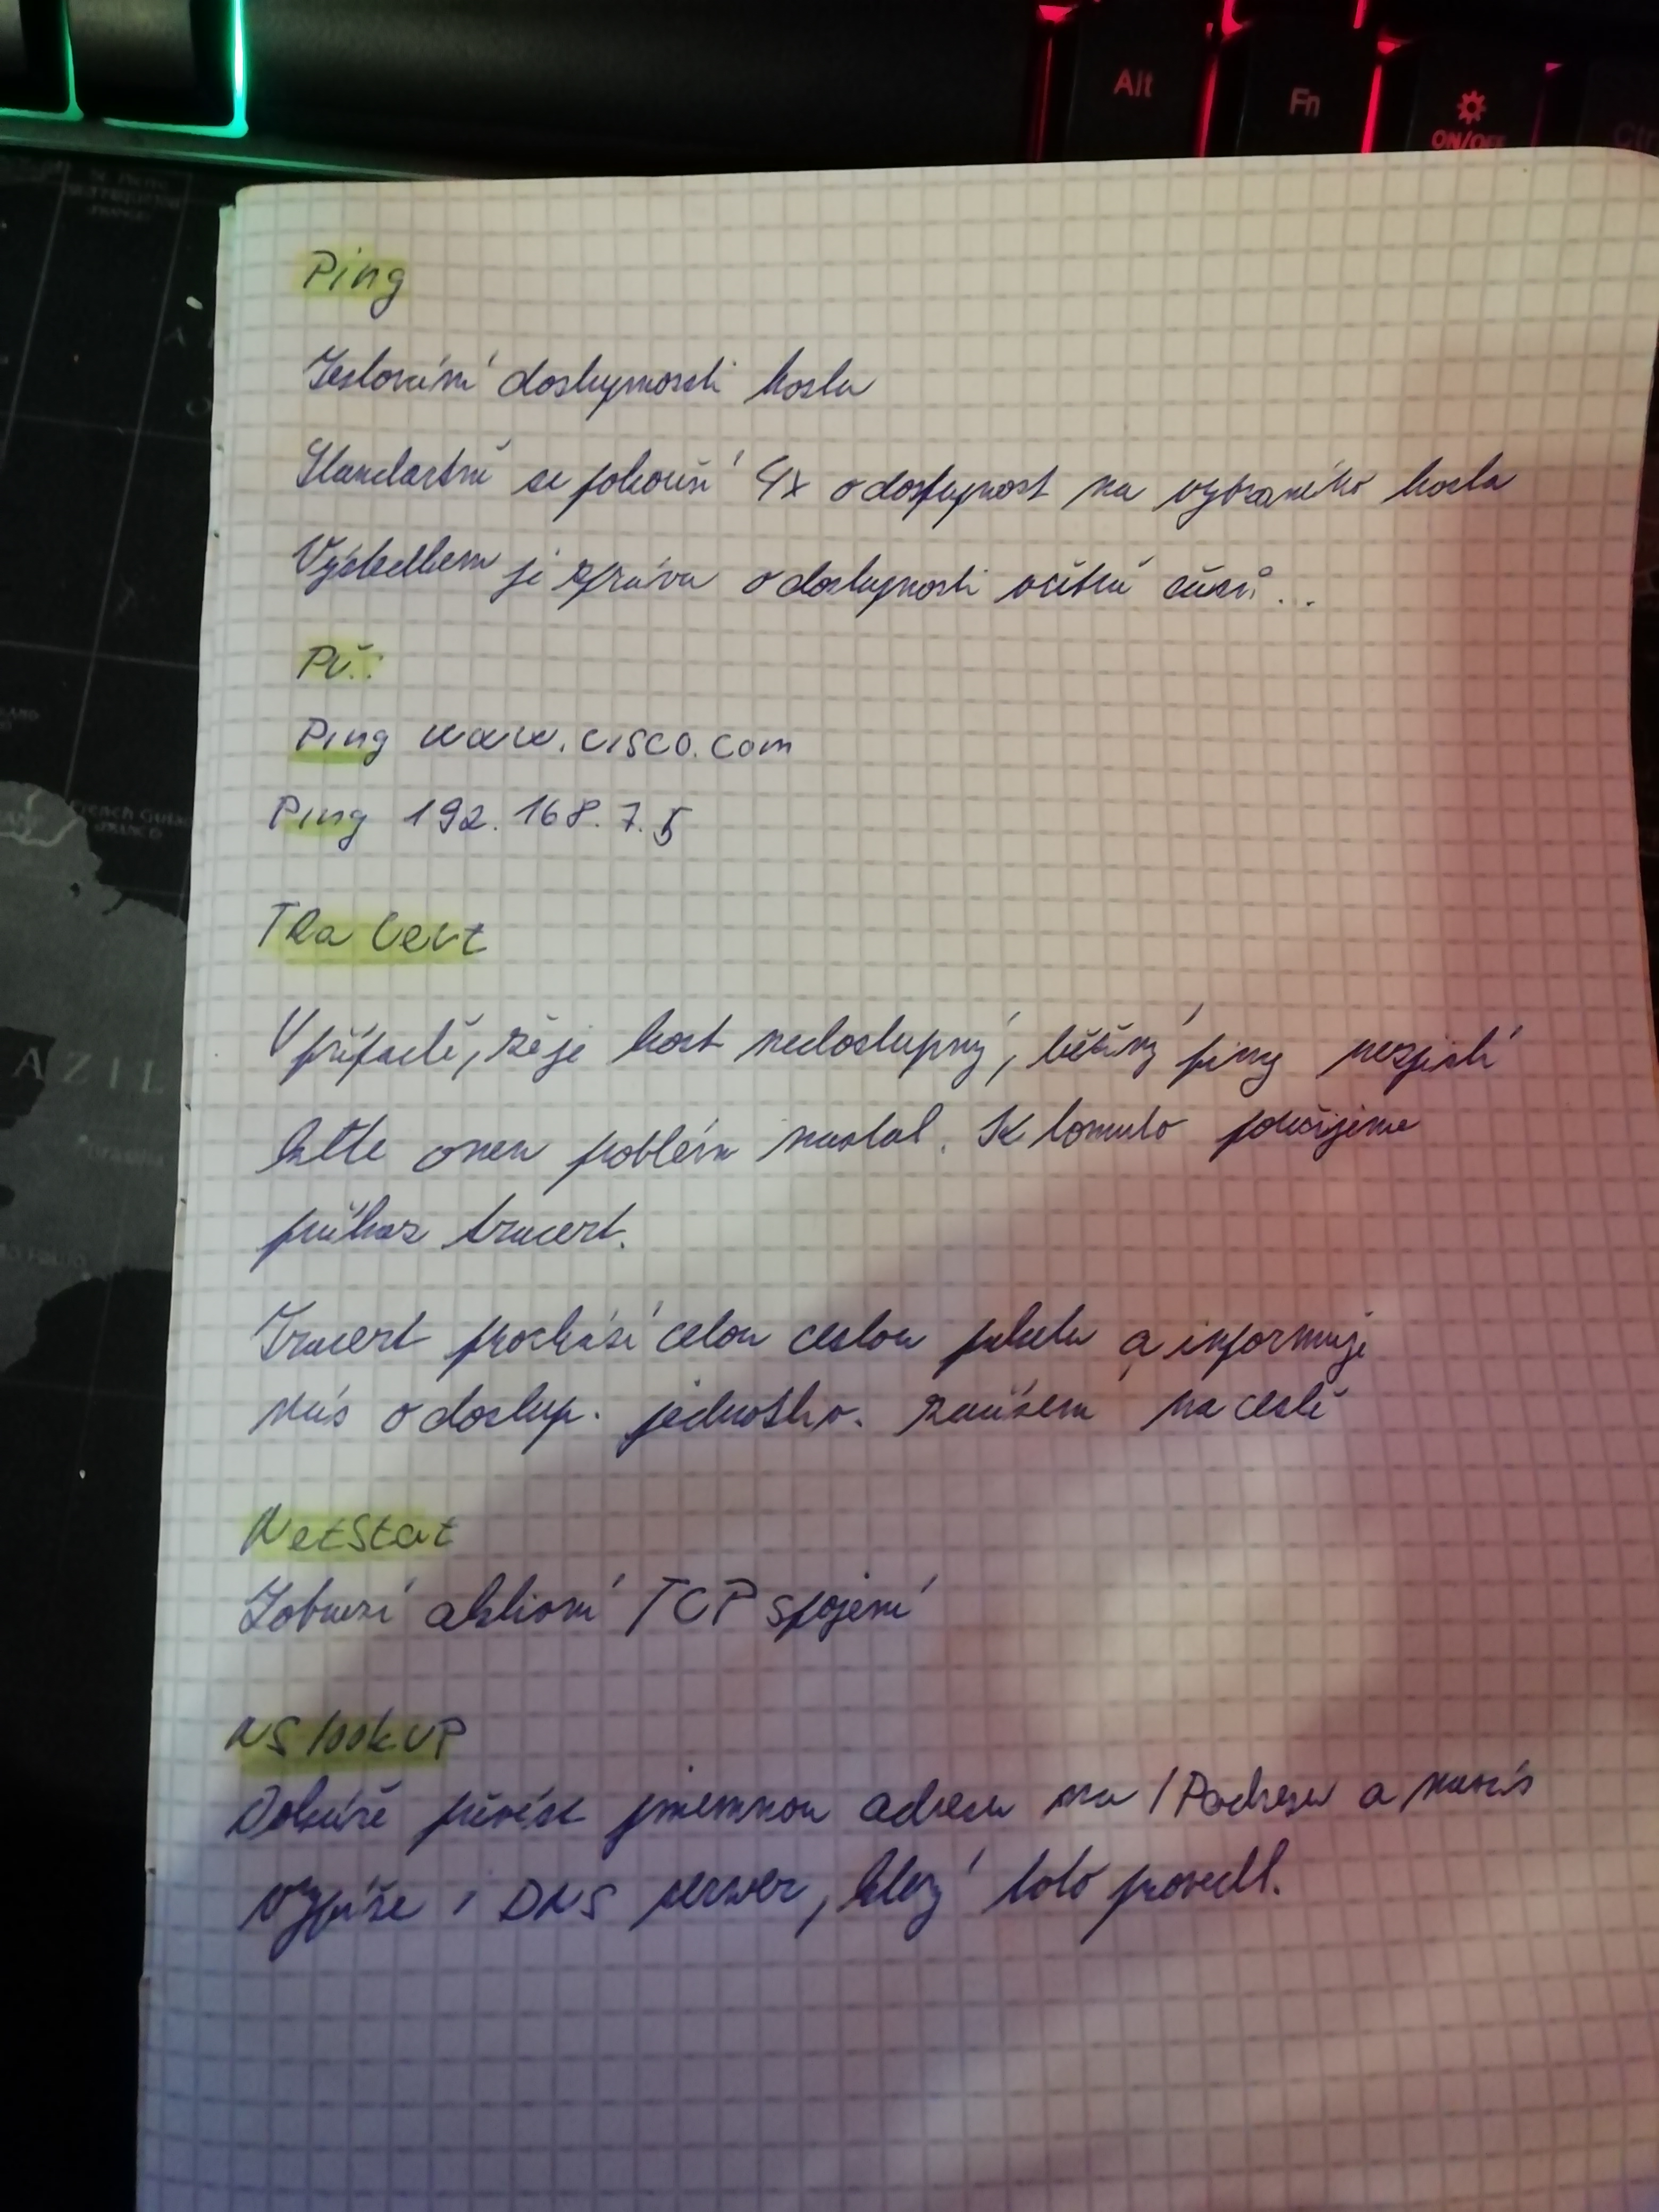 Alt
Fn
ON/OFF
Ctr
Ping
Testování dostupnosti hosta
Standartně se pokouší 4x o dostupnost na vybraného hosta
Výsledkem je zpráva o dostupnosti včetně časů...
Př.:
Ping www.cisco.com
Ping 192.168.7.5
TRaCert
V případě, že je host nedostupný, běžný ping nezjistí
kde onen problém nastal. K tomuto použijeme
příkaz tracert.
Tracert prochází celou cestou paketu a informuje
nás o dostup. jednotliv. zařízení na cestě
NetStat
Zobrazí aktivní TCP spojení
NSlookUP
Dokáže převést jmennou adresu na IP adresu a navíc
vypíše i DNS server, který toto provedl.
AZIL